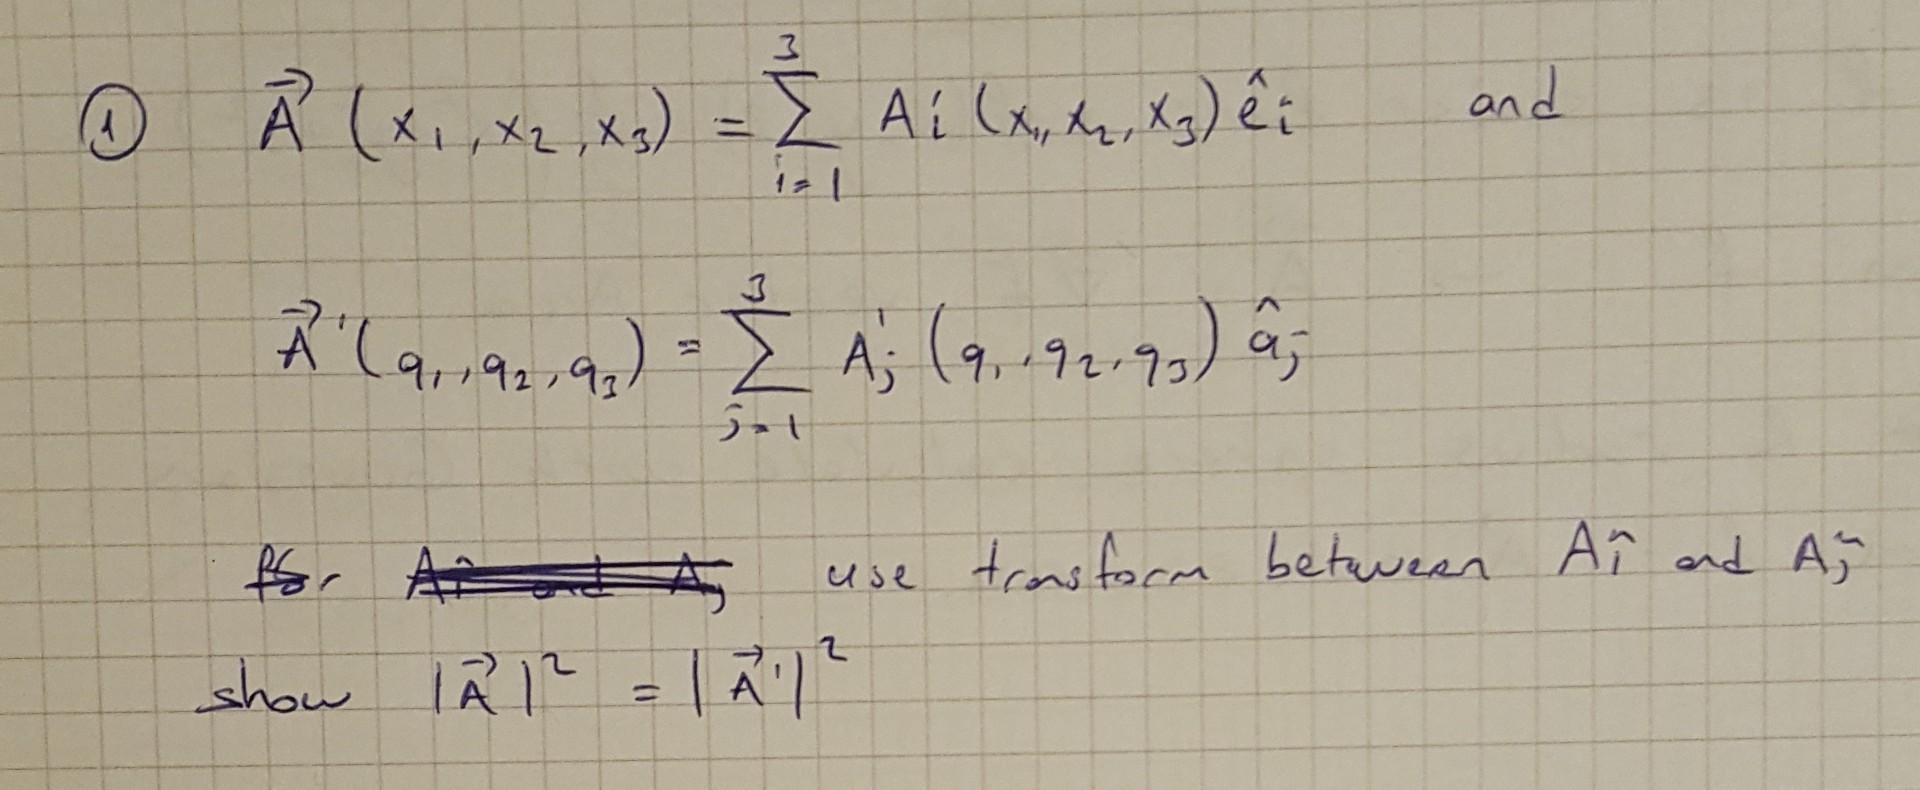 ① A⃗ (x₁, x₂, x₃) = ∑_{i=1}^{3} Aᵢ (x₁, x₂, x₃) êᵢ and
A⃗'(q₁, q₂, q₃) = ∑_{j=1}^{3} A'ⱼ (q₁, q₂, q₃) q̂ⱼ
for Aᵢ and Aⱼ use transform between Aᵢ and Aⱼ
show |A⃗|² = |A⃗'|²